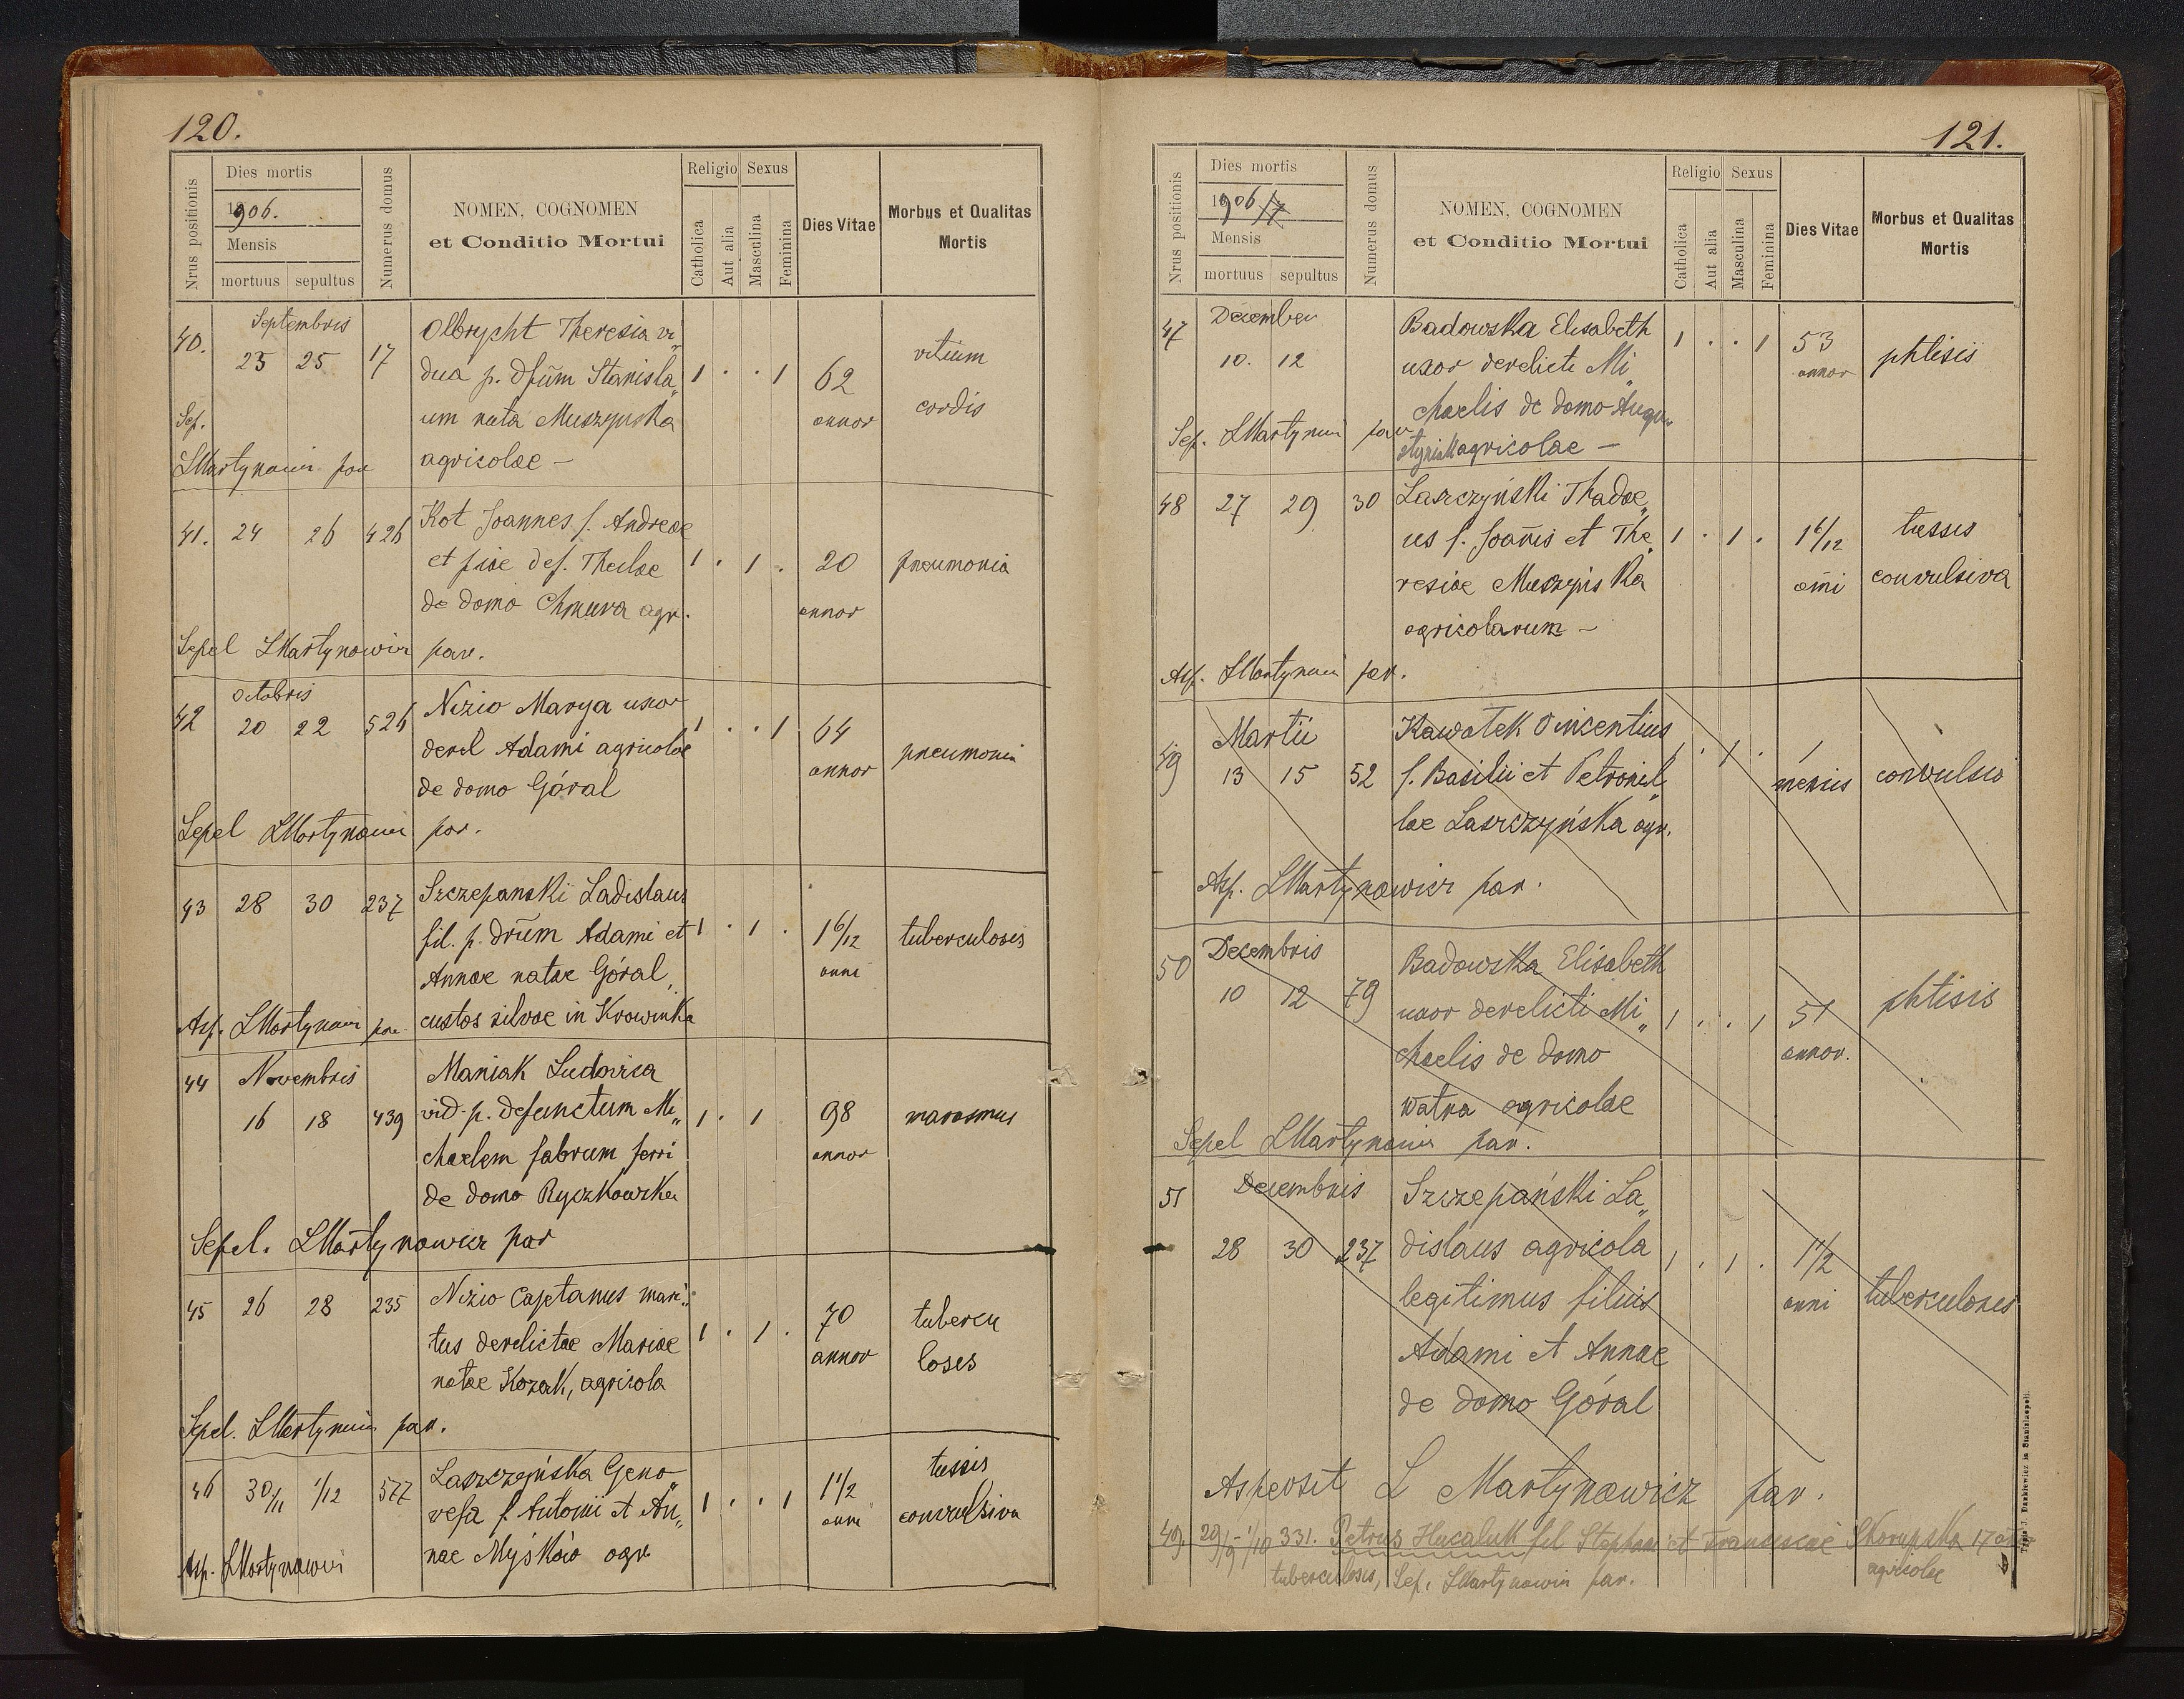 120.
Nrus positionis
Dies mortis
1906.
Mensis
mortuus sepultus
Numerus domus
NOMEN, COGNOMEN
et Conditio Mortui
Religio Sexus
Catholica
Aut alia
Masculina
Feminina
Dies Vitae
Morbus et Qualitas
Mortis
40. Septembris
23 25 17
Olbrycht Theresia vi„
dua p. dfũm Stanisla„
um nata Muszynska
agricolae —
1 . . 1
62
annor
vitium
cordis
Sep.
LMartynowicz par
41. 24 26 426
Kot Joannes f. Andreae
et piae def. Theclae
de domo Chmura agr.
1 . 1 .
20
annor
pneumonia
Sepel LMartynowicz par.
42 Octobris
20 22 526
Nizio Marya uxor
derel Adami agricolae
de domo Góral
1 . . 1
64
annor
pneumonia
Sepel LMartynowicz par.
43 28 30 237
Szczepanski Ladislaus
fil. p. drũm Adami et
Annae natae Góral,
custos silvae in Krowinka
1 . 1 .
1 6/12
anni
tuberculosis
Asp. LMartynowicz par
44 Novembris
16 18 439
Maniak Ludovica
vid. p. defunctum Mi„
chaelem fabrum ferri
de domo Ryczkowska
1 . 1
98
annor
marasmus
Sepel. LMartynowicz par
45 26 28 235
Nizio Cajetanus mari„
tus derelictae Mariae
natae Kozak, agricola
1 . 1 .
70
annor
tubercu
loses
Sepel. LMartynowicz par.
46 30/11 1/12 577
Laszczyńska Geno„
vefa f Antonii et An„
nae Myśków agr
1 . . 1
1 1/2
anni
tussis
convulsiva
Asp. LMartynowicz
121.
Nrus positionis
Dies mortis
1906/7
Mensis
mortuus sepultus
Numerus domus
NOMEN, COGNOMEN
et Conditio Mortui
Religio Sexus
Catholica
Aut alia
Masculina
Feminina
Dies Vitae
Morbus et Qualitas
Mortis
47 December
10. 12
Badowska Elisabeth
uxor derelicti Mi„
chaelis de domo Augu„
styniak agricolae —
1 . . 1
53
annor
phtisis
Sep. LMartynowicz par
48 27 29 30
Laszczyński Thadae„
us f. Joañis et The„
resiae Muszyńska
agricolarum —
1 . 1 .
1 6/12
añi
tussis
convulsiva
Asp. LMartynowicz par.
49 Martii
13 15 52
Kawałek Vincentius
f. Basilii et Petronil„
lae Laszczyńska agr.
1 . 1 .
1
mensis
convulsio
Asp. LMartynowicz par.
50 Decembris
10 12 79
Badowska Elisabeth
uxor derelicti Mi„
chaelis de domo
Watra agricolae
1 . . 1
51
annor.
phtisis
Sepel LMartynowicz par.
51 Decembris
28 30 237
Szczepański La„
dislaus agricola
legitimus filius
Adami et Annae
de domo Góral
1 . 1 .
1 1/2
anni
tuberculoses
Aspersit L Martynowicz par.
49. 29/9 1/10 331. Petrus Hucaluk fil Stephani et Franciscae Skorupska 17
agricolae
tuberculosis, Sep. LMartynowicz par.
J. Dankiewicz in Stanislaopoli.